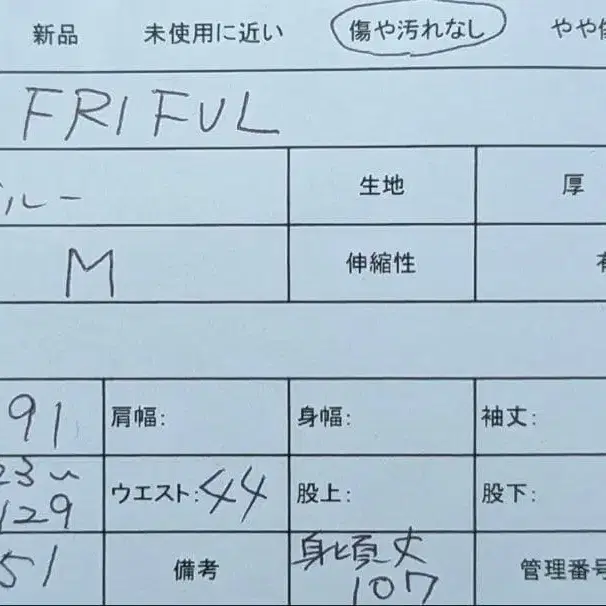 新品 未使用に近い 傷や汚れなし やや傷
FRI FUL
ブルー 生地 厚
M 伸縮性 有
91 肩幅: 身幅: 袖丈:
23〜 ウエスト:44 股上: 股下:
129
51 備考 身頃丈 管理番号
107